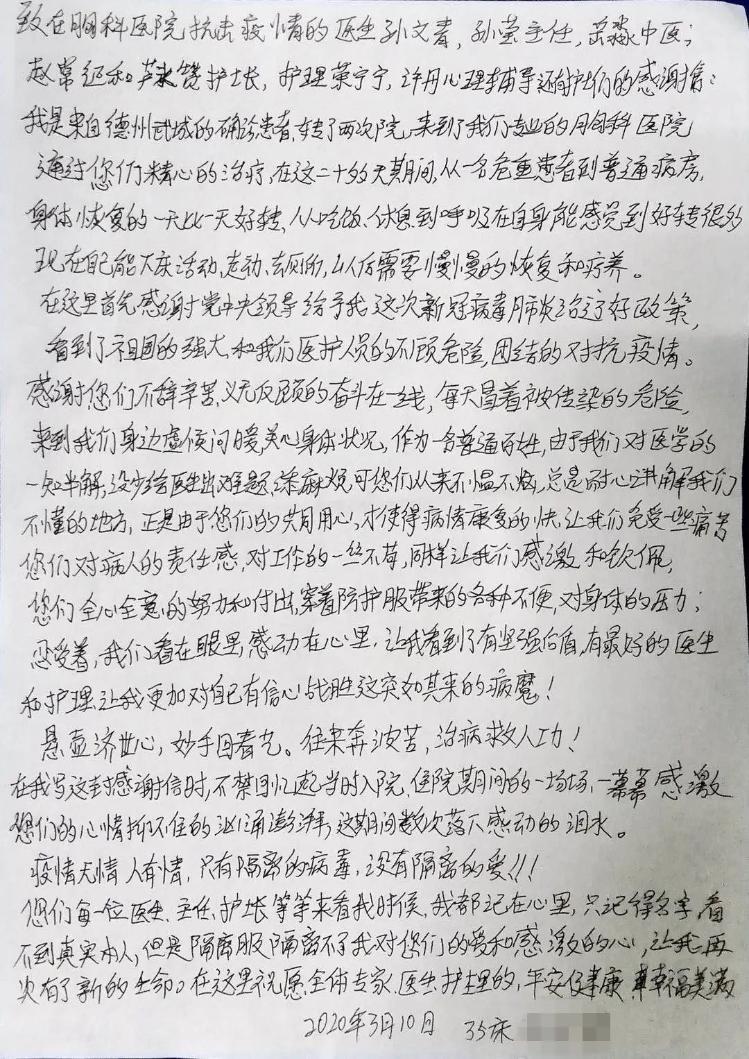 致在胸科医院抗击疫情的医生孙文青，孙莹主任，岳淼中医；
赵常征和芦来赞护士长，护理荣宁宁，许丹心理辅导还有护士们的感谢信：
我是来自德州武城的确诊患者，转了两次院，来到了我们专业的胸科医院
通过您们精心的治疗，在这二十多天期间，从一名危重患者到普通病房，
身体恢复的一天比一天好转，从吃饭、休息到呼吸在自身能感觉到好转很多
现在自己能下床活动，走动、去厕所，以后需要慢慢的恢复和疗养。
在这里首先感谢党中央领导给予我这次新冠病毒肺炎治疗好政策，
看到了祖国的强大，和我们医护人员的不顾危险，团结的对抗疫情。
感谢您们不辞辛苦，义无反顾的奋斗在一线，每天冒着被传染的危险，
来到我们身边虚候问暖，关心身体状况，作为一名普通百姓，由于我们对医学的
一知半解，没少给医生出难题，添麻烦可您们从来不愠不恼，总是耐心讲解我们
不懂的地方，正是由于您们的共同用心，才使得病情康复的快，让我们免受一些痛苦
您们对病人的责任感，对工作的一丝不苟，同样让我们感激和钦佩，
您们全心全意的努力和付出，穿着防护服带来的各种不便，对身体的压力；
忍受着，我们看在眼里，感动在心里，让我看到了有坚强后盾，有最好的医生
和护理，让我更加对自己有信心战胜这突如其来的病魔！
悬壶济世心，妙手回春艺。往来奔波苦，治病救人功！
在我写这封感谢信时，不禁回忆起当时入院，住院期间的一场场，一幕幕感激
您们的心情抑不住的汹涌澎湃，这期间数次落下感动的泪水。
疫情无情人有情，只有隔离的病毒，没有隔离的爱！！！
您们每一位医生、主任、护士长等等来看我时候，我都记在心里，只记得名字，看
不到真实本人，但是隔离服隔离不了我对您们的爱和感激的心，让我再
次有了新的生命。在这里祝愿全体专家、医生护理的，平安健康，幸福美满
2020年3月10日 35床